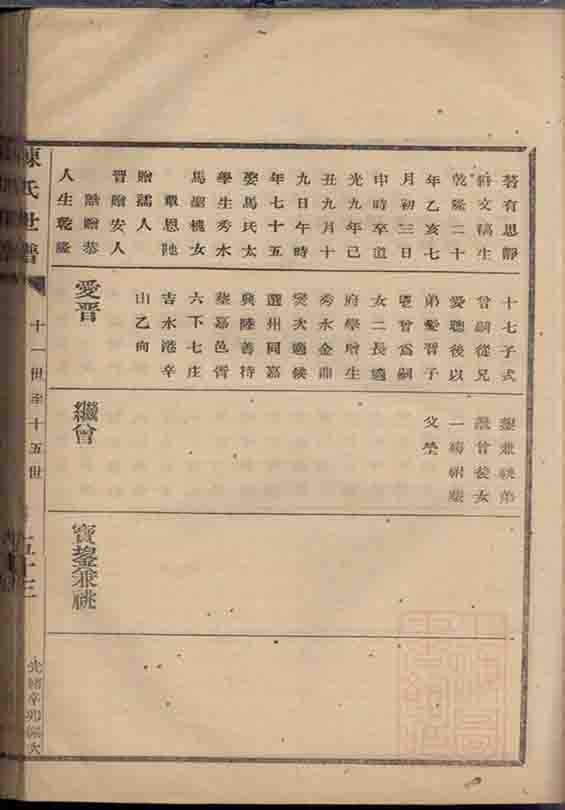 著有思靜
齋文稿生
乾隆二十
年乙亥七
月初三日
申時卒道
光九年己
丑九月十
九日午時
年七十五
娶馬氏太
學生秀水
馬 女
覃恩貤
贈孺人
晉贈安人
贈恭
人生乾隆
十七子式
曾嗣從兄
愛聰後以
弟愛晉子
曾爲嗣
女二長適
府學增生
秀水金鼎
次適候
選州同嘉
興陸善持
葬嘉邑胥
六下七庄
吉水港辛
山乙向
愛晉
兼祧弟
曾養女
一
文
繼曾
寶 兼祧
陳氏世譜
十一世至十五世
五十三
光緒辛卯